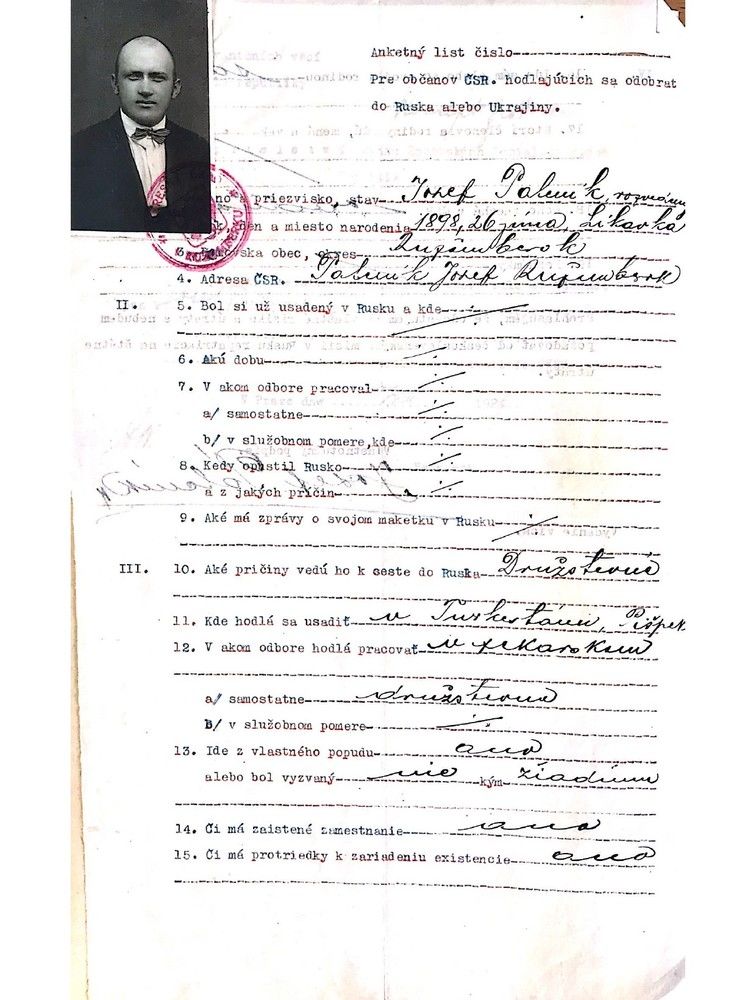 Anketný list číslo
Pre občanov ČSR. hodlajúcich sa odobrat
do Ruska alebo Ukrajiny.
a priezvisko, stav Jozef Palenik,
a miesto narodenia 1898, 26 júna, Likavka
obec, okres Ružomberok
4. Adresa ČSR. Palenik Jozef Ružomberok
II. 5. Bol si už usadený v Rusku a kde
6. Akú dobu
7. V akom odbore pracoval
a/ samostatne
b/ v služobnom pomere, kde
8. Kedy opustil Rusko
a z jakých príčin
9. Aké má zprávy o svojom maketku v Rusku
III. 10. Aké pričiny vedú ho k ceste do Ruska Družstevné
11. Kde hodlá sa usadiť v Turkestánu, Pišpek
12. V akom odbore hodlá pracovať v pekarskom
a/ samostatne družstevne
b/ v služobnom pomere
13. Ide z vlastného popudu ano
alebo bol vyzvaný nie kým žiadnim
14. Či má zaistené zamestnanie ano
15. Či má protriedky k zariadeniu existencie ano